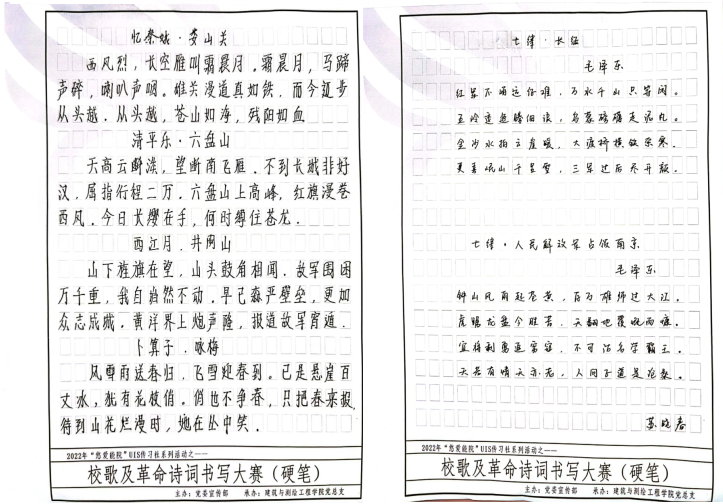 忆秦娥·娄山关
西风烈，长空雁叫霜晨月。霜晨月，马蹄
声碎，喇叭声咽。雄关漫道真如铁，而今迈步
从头越。从头越，苍山如海，残阳如血
清平乐·六盘山
天高云断淡，望断南飞雁。不到长城非好
汉，屈指行程二万。六盘山上高峰，红旗漫卷
西风。今日长缨在手，何时缚住苍龙。
西江月．井冈山
山下旌旗在望，山头鼓角相闻．敌军围困
万千重，我自岿然不动．早已森严壁垒，更加
众志成城．黄洋界上炮声隆，报道敌军宵遁．
卜算子．咏梅
风雪雨送春归，飞雪迎春到。已是悬崖百
丈冰，犹有花枝俏。俏也不争春，只把春来报
待到山花烂漫时，她在丛中笑．
2022年“悠爱能院”UIS传习社系列活动之——
校歌及革命诗词书写大赛（硬笔）
主办：党委宣传部 承办：建筑与测绘工程学院党总支
七律·长征
毛泽东
红军不怕远征难，万水千山只等闲。
五岭逶迤腾细浪，乌蒙磅礴走泥丸。
金沙水拍云崖暖，大渡桥横铁索寒。
更喜岷山千里雪，三军过后尽开颜。
七律·人民解放军占领南京
毛泽东
钟山风雨起苍黄，百万雄师过大江。
虎踞龙盘今胜昔，天翻地覆慨而慷。
宜将剩勇追穷寇，不可沽名学霸王。
天若有情天亦老，人间正道是沧桑。
苏晓春
2022年“悠爱能院”UIS传习社系列活动之——
校歌及革命诗词书写大赛（硬笔）
主办：党委宣传部 承办：建筑与测绘工程学院党总支